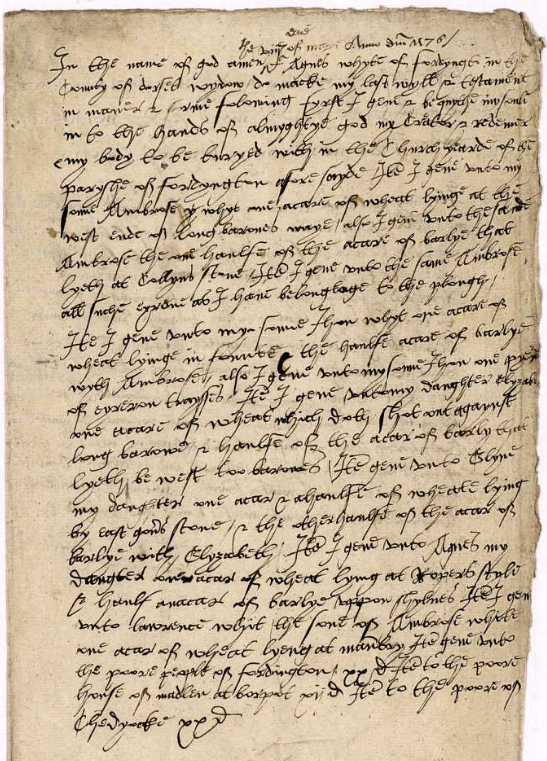 ye viijth of maye Anno dni 1576
In the name of god amen I Agnes whyte of fordyngto in the
County of dorset wydow do macke my last wyll & testament
in maner & forme folowing fyrst I geve & bequythe my soule
in to the hands of almyghtye god my Creator & redemer
my body to be buryed with in the Church yearde of the
paryshe of fordyngton afore sayde Ite I geve unto my
sonne Ambrose whyt one acare of wheat lyinge at the
west ende of long barowes waye also I geve unto the saide
Ambrose the one haulfe of the acare of barlye that
lyeth at Collyns stone Ite I geve unto the same Ambrose
all suche as I have belongage to the plough
Ite I geve unto my sonne Jhon whyt one acare of
wheat lyinge in the haulfe acare of barlye
wyth Ambrose also I geve unto my sonne Jhon one
of traysses Ite I geve unto my daughter
one acare of wheat which doth shot out against
long barowe & haulfe of the acar of barly that
lyeth be west too barowes Ite geve unto
my daughter one acar & a haulfe of wheate lying
by east stone & the other haulfe of the acar of
barlye with Elyzabeth Ite I geve unto Agnes my
daughter one acar of wheat lying at Ropers style
& haulf an acar of barlye uppon Ite I geve
unto lawrence whit the sone of Ambrose white
one acar of wheat lyeng at Ite geve unto
the poore people of fordington xx d Ite to the poore
house of xij d Ite to the poore of
xx d